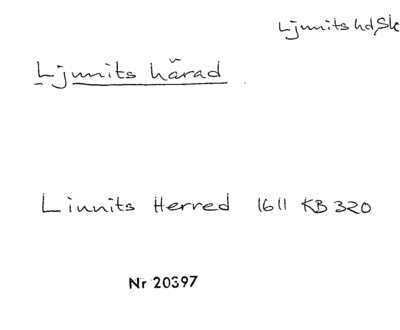 Ljunits hd, Sk
Ljunits härad
Linnits Herred 1611 KB 320
Nr 20397